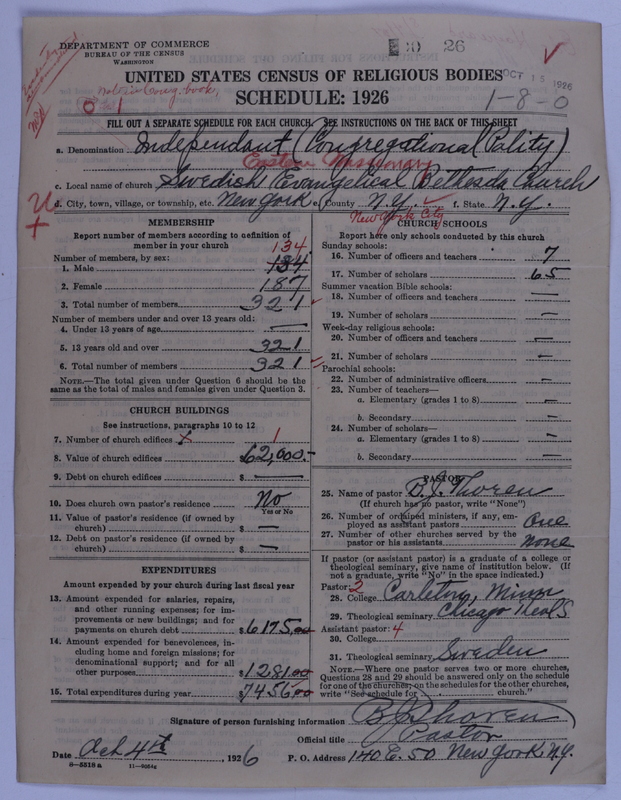 DEPARTMENT OF COMMERCE
BUREAU OF THE CENSUS
WASHINGTON
26
OCT 15 1926
UNITED STATES CENSUS OF RELIGIOUS BODIES
SCHEDULE: 1926
1-8-0
FILL OUT A SEPARATE SCHEDULE FOR EACH CHURCH. SEE INSTRUCTIONS ON THE BACK OF THIS SHEET
a. Denomination Independant (Congregational Polity)
Eastern Missionary
c. Local name of church Swedish Evangelical Bethesda Church
d. City, town, village, or township, etc. New York e. County N.Y. f. State N.Y.
New York City
MEMBERSHIP
Report number of members according to definition of member in your church
Number of members, by sex:
134
1. Male 134
2. Female 187
3. Total number of members 321
Number of members under and over 13 years old:
4. Under 13 years of age —
5. 13 years old and over 321
6. Total number of members 321
NOTE.—The total given under Question 6 should be the same as the total of males and females given under Question 3.
CHURCH BUILDINGS
See instructions, paragraphs 10 to 12
7. Number of church edifices x 1
8. Value of church edifices $62,000.-
9. Debt on church edifices $ —
10. Does church own pastor's residence No
Yes or No
11. Value of pastor's residence (if owned by church) $ —
12. Debt on pastor's residence (if owned by church) $ —
EXPENDITURES
Amount expended by your church during last fiscal year
13. Amount expended for salaries, repairs, and other running expenses; for improvements or new buildings; and for payments on church debt $6175.00
14. Amount expended for benevolences, including home and foreign missions; for denominational support; and for all other purposes $1281.00
15. Total expenditures during year $7456.00
CHURCH SCHOOLS
Report here only schools conducted by this church
Sunday schools:
16. Number of officers and teachers 7
17. Number of scholars 65
Summer vacation Bible schools:
18. Number of officers and teachers —
19. Number of scholars —
Week-day religious schools:
20. Number of officers and teachers —
21. Number of scholars —
Parochial schools:
22. Number of administrative officers —
23. Number of teachers—
a. Elementary (grades 1 to 8) —
b. Secondary —
24. Number of scholars—
a. Elementary (grades 1 to 8) —
b. Secondary —
PASTOR
25. Name of pastor B. J. Thoren
(If church has no pastor, write "None")
26. Number of ordained ministers, if any, employed as assistant pastors One
27. Number of other churches served by the pastor or his assistants None
If pastor (or assistant pastor) is a graduate of a college or theological seminary, give name of institution below. (If not a graduate, write "No" in the space indicated.)
Pastor: 2
28. College Carleton, Minn
29. Theological seminary Chicago Theol S
Assistant pastor: 4
30. College
31. Theological seminary Sweden
NOTE.—Where one pastor serves two or more churches, Questions 28 and 29 should be answered only on the schedule for one of the churches; on the schedules for the other churches, write "See schedule for church."
Signature of person furnishing information B. J. Thoren
Official title Pastor
Date Oct 4th, 1926 P. O. Address 140 E. 50 New York N.Y.
8—5518 a 11—9064g